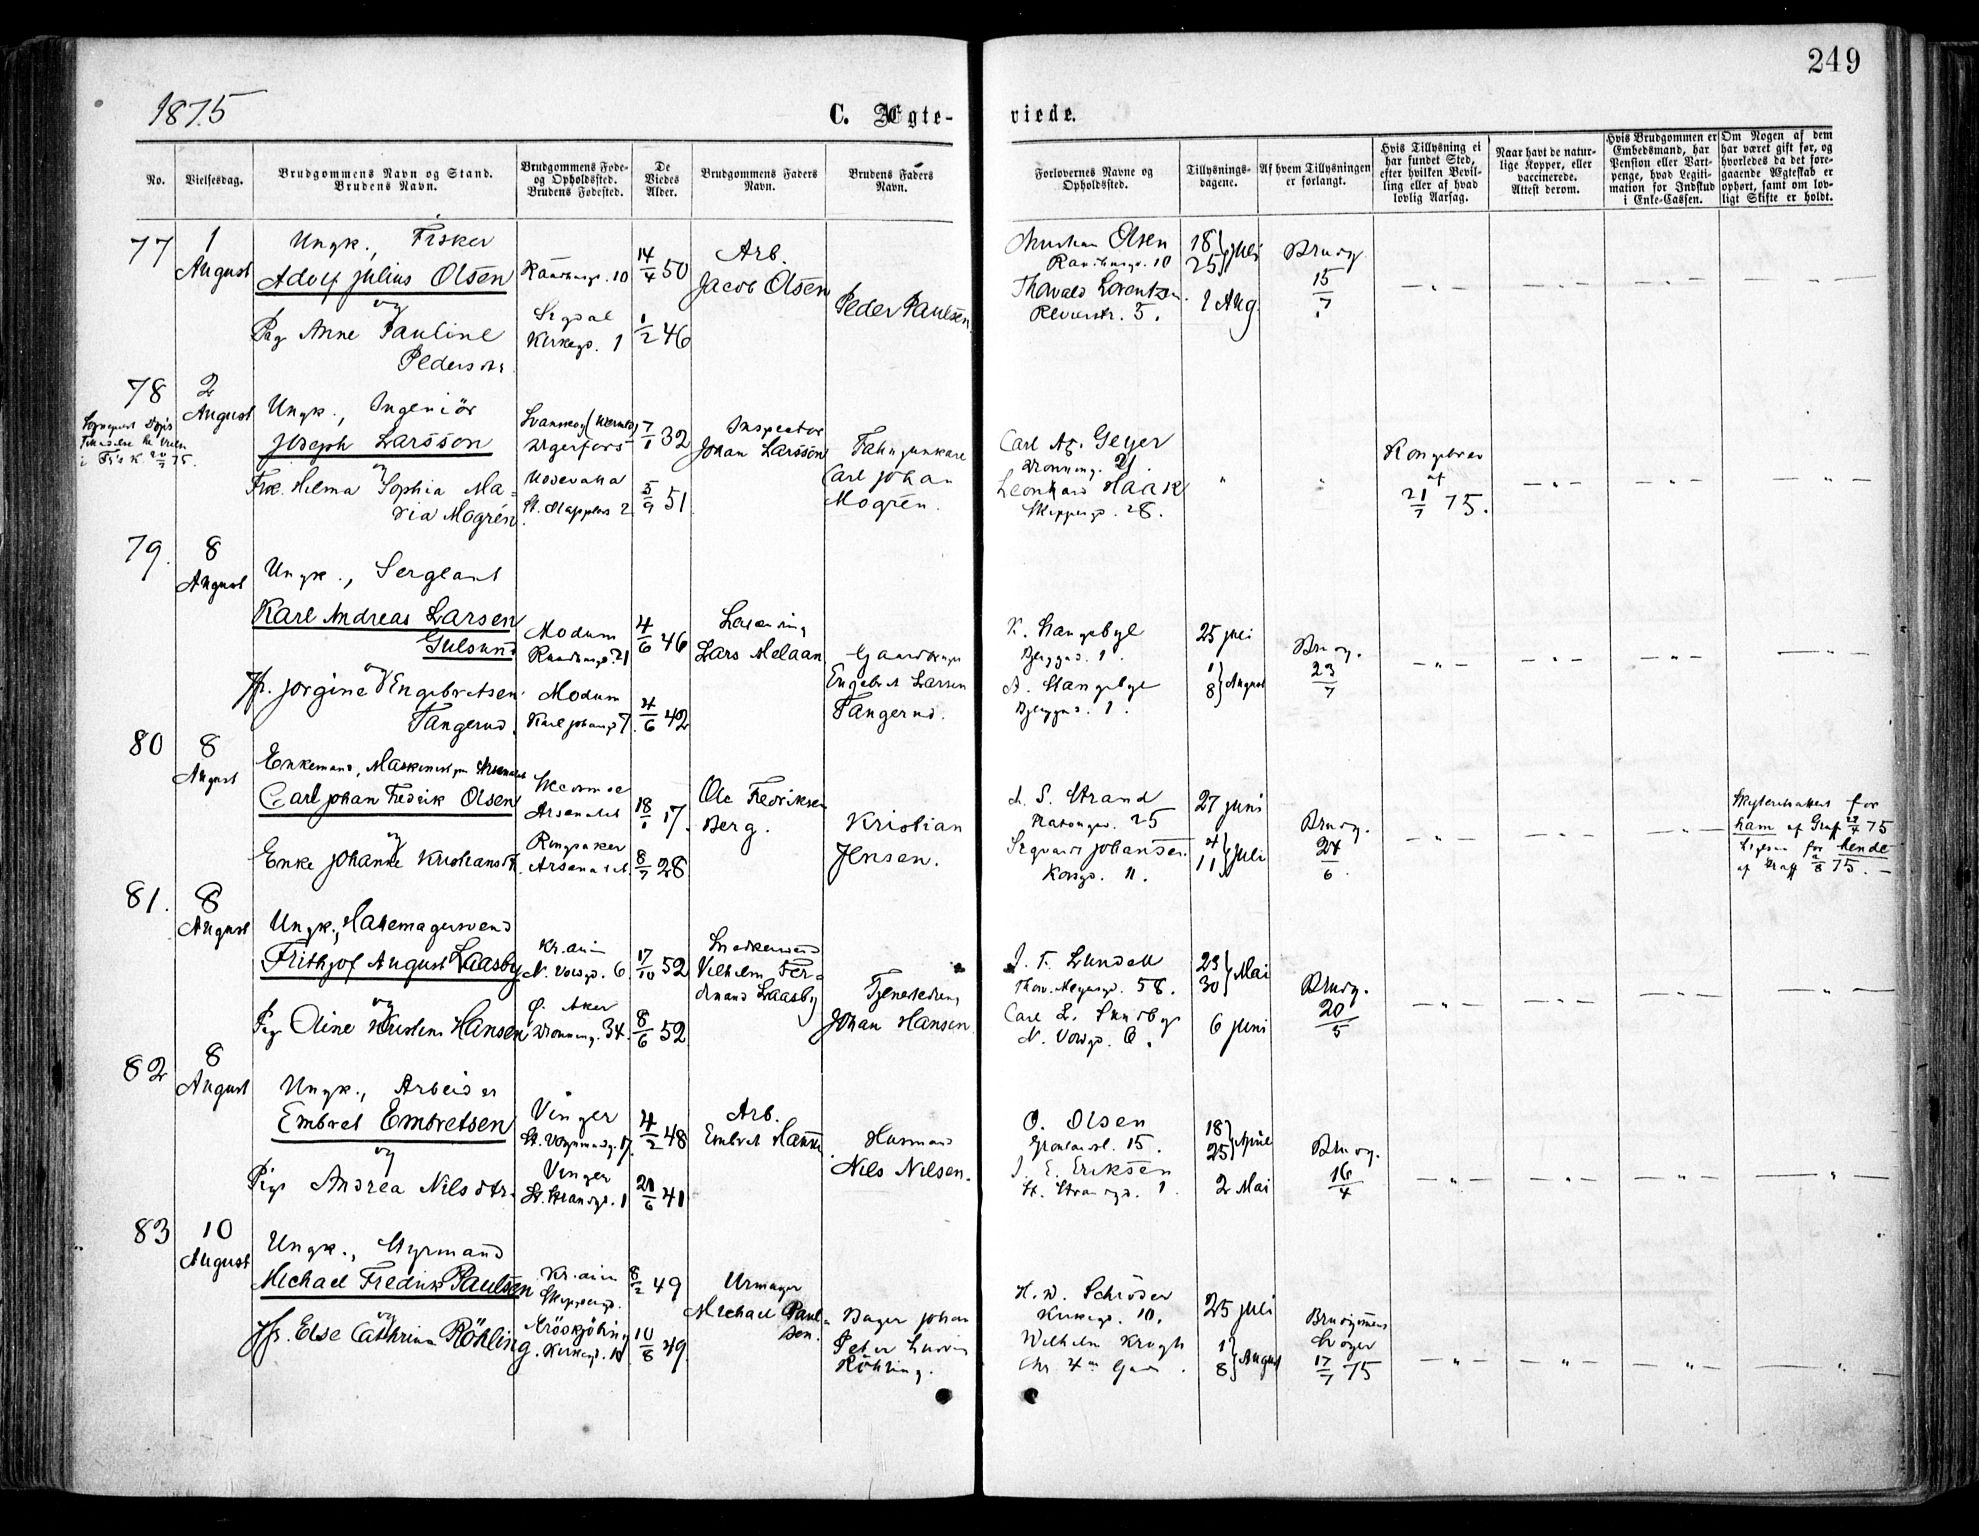 249
1875
C. Ægte- viede.
No.
Vielsesdag.
Brudgommens Navn og Stand.
Brudens Navn.
Brudgommens Føde-
og Opholdssted.
Brudens Fødested.
De
Viedes
Alder.
Brudgommens Faders
Navn.
Brudens Faders
Navn.
Forlovernes Navne og
Opholdssted.
Tillysnings-
dagene.
Af hvem Tillysningen
er forlangt.
Hvis Tillysning ei
har fundet Sted,
efter hvilken Bevil-
ling eller af hvad
lovlig Aarsag.
Naar havt de natur-
lige Kopper, eller
vaccinerede.
Attest derom.
Hvis Brudgommen er
Embedsmand, har
Pension eller Vart-
penge, hvad Legiti-
mation for Indskud
i Enke-Cassen.
Om Nogen af dem
har været gift før, og
hvorledes da det fore-
gaaende Ægteskab er
ophørt, samt om lov-
ligt Skifte er holdt.
77
1
August
Ungk., Fisker
Adolf Julius Olsen
og
Pig Anne Pauline
Pedersdtr
10
Sigdal
Kirkegd. 1
14/4 50
1/2 46
Arb.
Jacob Olsen
Peder Paulsen
Olsen
10
Thorvald Lorentzen
5.
18
25 } Juli
1 Aug.
Brudg
15/7
78
2
August
i 75.
Ungk., Ingeniør
Joseph Larsson
og
Frk. Hilma Sophia Ma-
ria Mogrén
Uddevalla
2
7/1 32
5/9 51
Inspector
Johan Larsson
Fahnjunkare
Carl Johan
Mogrén.
Carl Geyer
Dronning. 21.
Leonhard Haak
Skippergd. 28.
Kongebrev
af
21/7 75.
79.
8
August
Ungk., Sergeant
Karl Andreas Larsen
Gulsund
og
Jfr. Jorgine Engebretsen
Tangerud.
Modum
21
Modum
Karl Johansgd 7
4/6 46
4/6 42
Lars Melaan
Engebret Larsen
Tangerud.
K. Hangebye
1.
A. Hangebye
1.
25 Juli
1
8 } August
Brudg.
23/7
80
8
August
Enkemand,
Carl Johan Fredrik Olsen
og
Enke Johanne Kristiansdtr.
Arsenalet
Ringsaker
Arsenalet
18/1 17.
8/7 28
Ole Fredriksen
Berg.
Kristian
Jensen.
S. Strand
25
Sigvard Johansen.
11.
27 Juni
4
11 } Juli
Brudg.
24/6.
for
ham af Graff 75
for hende
af Graff 75. –
81.
8
August
Ungk., Hattemagersvend
Frithjof August Laasby
og
Pige Oline Hansen
Kr.ania
N. Voldgd. 6
Ø. Aker
Dronning. 34.
17/10 52
8/6 52
Snedkersvend
Vilhelm Fer-
dinand Laasby
Johan Hansen
J. F. Lundell
Thorv. Meyersgd. 58.
Carl L. Sundbye
N. Voldgd. 6.
23
30 } Mai
6 Juni
Brudg.
20/5
82
8
August
Ungk., Arbeider
Embret Embretsen
og
Pige Andrea Nilsdtr.
Vinger
17.
Vinger
St. Strandgd. 1
4/2 48
21/6 41
Arb.
Embret Hansen
Husmand
Nils Nilsen.
O. Olsen
15.
J. E. Eriksen
St. Strandgd. 1.
18
25 } April
2 Mai
Brudg.
16/4
83
10
August
Ungk., Styrmand
Michael Fredrik Paulsen
og
Jfr. Else Cathrina Röhling
Kr.ania
Skippergd.
Ärösköping
Kirkegd. 10
8/2 49
10/8 49
Urmager
Michael Paul-
sen.
Bager Johan
Peter
Röhling.
H. D. Schröder
Kirkegd. 10.
Wilhelm Krogh
25 Juli
1
8 } August
Brudgommens
Svoger
17/7 75